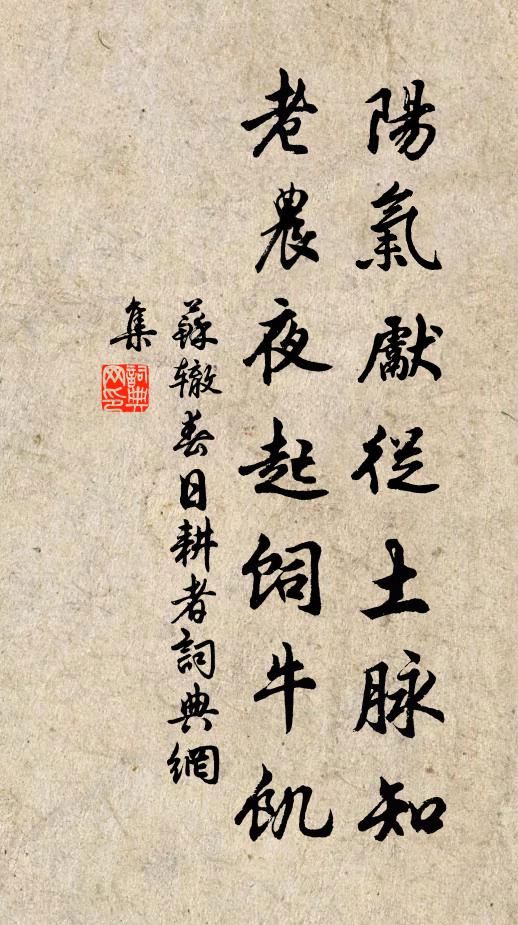 陽氣先從土脈知
老農夜起飼牛飢
蘇轍春日耕者詞典網
集
詞典
网印